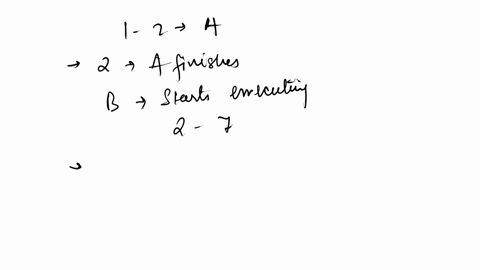 1 - 2 → A
→ 2 → A finishes
B → Starts executing
2 - 7
→